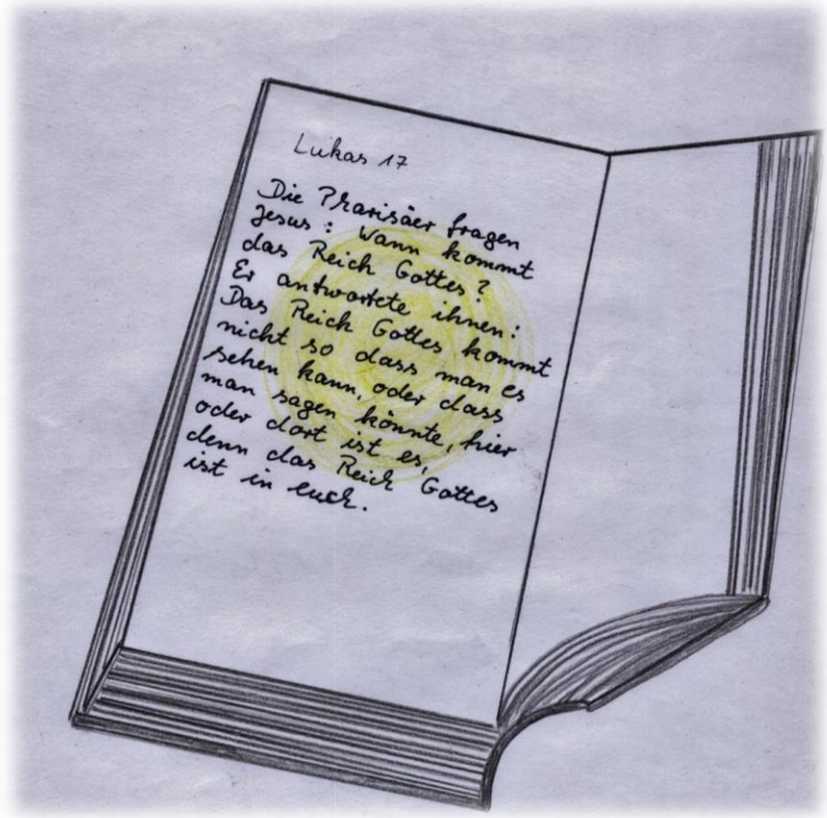 Lukas 17
Die Pharisäer fragen
Jesus: Wann kommt
das Reich Gottes?
Er antwortete ihnen:
Das Reich Gottes kommt
nicht so dass man es
sehen kann, oder dass
man sagen könnte, hier
oder dort ist es,
denn das Reich Gottes
ist in euch.